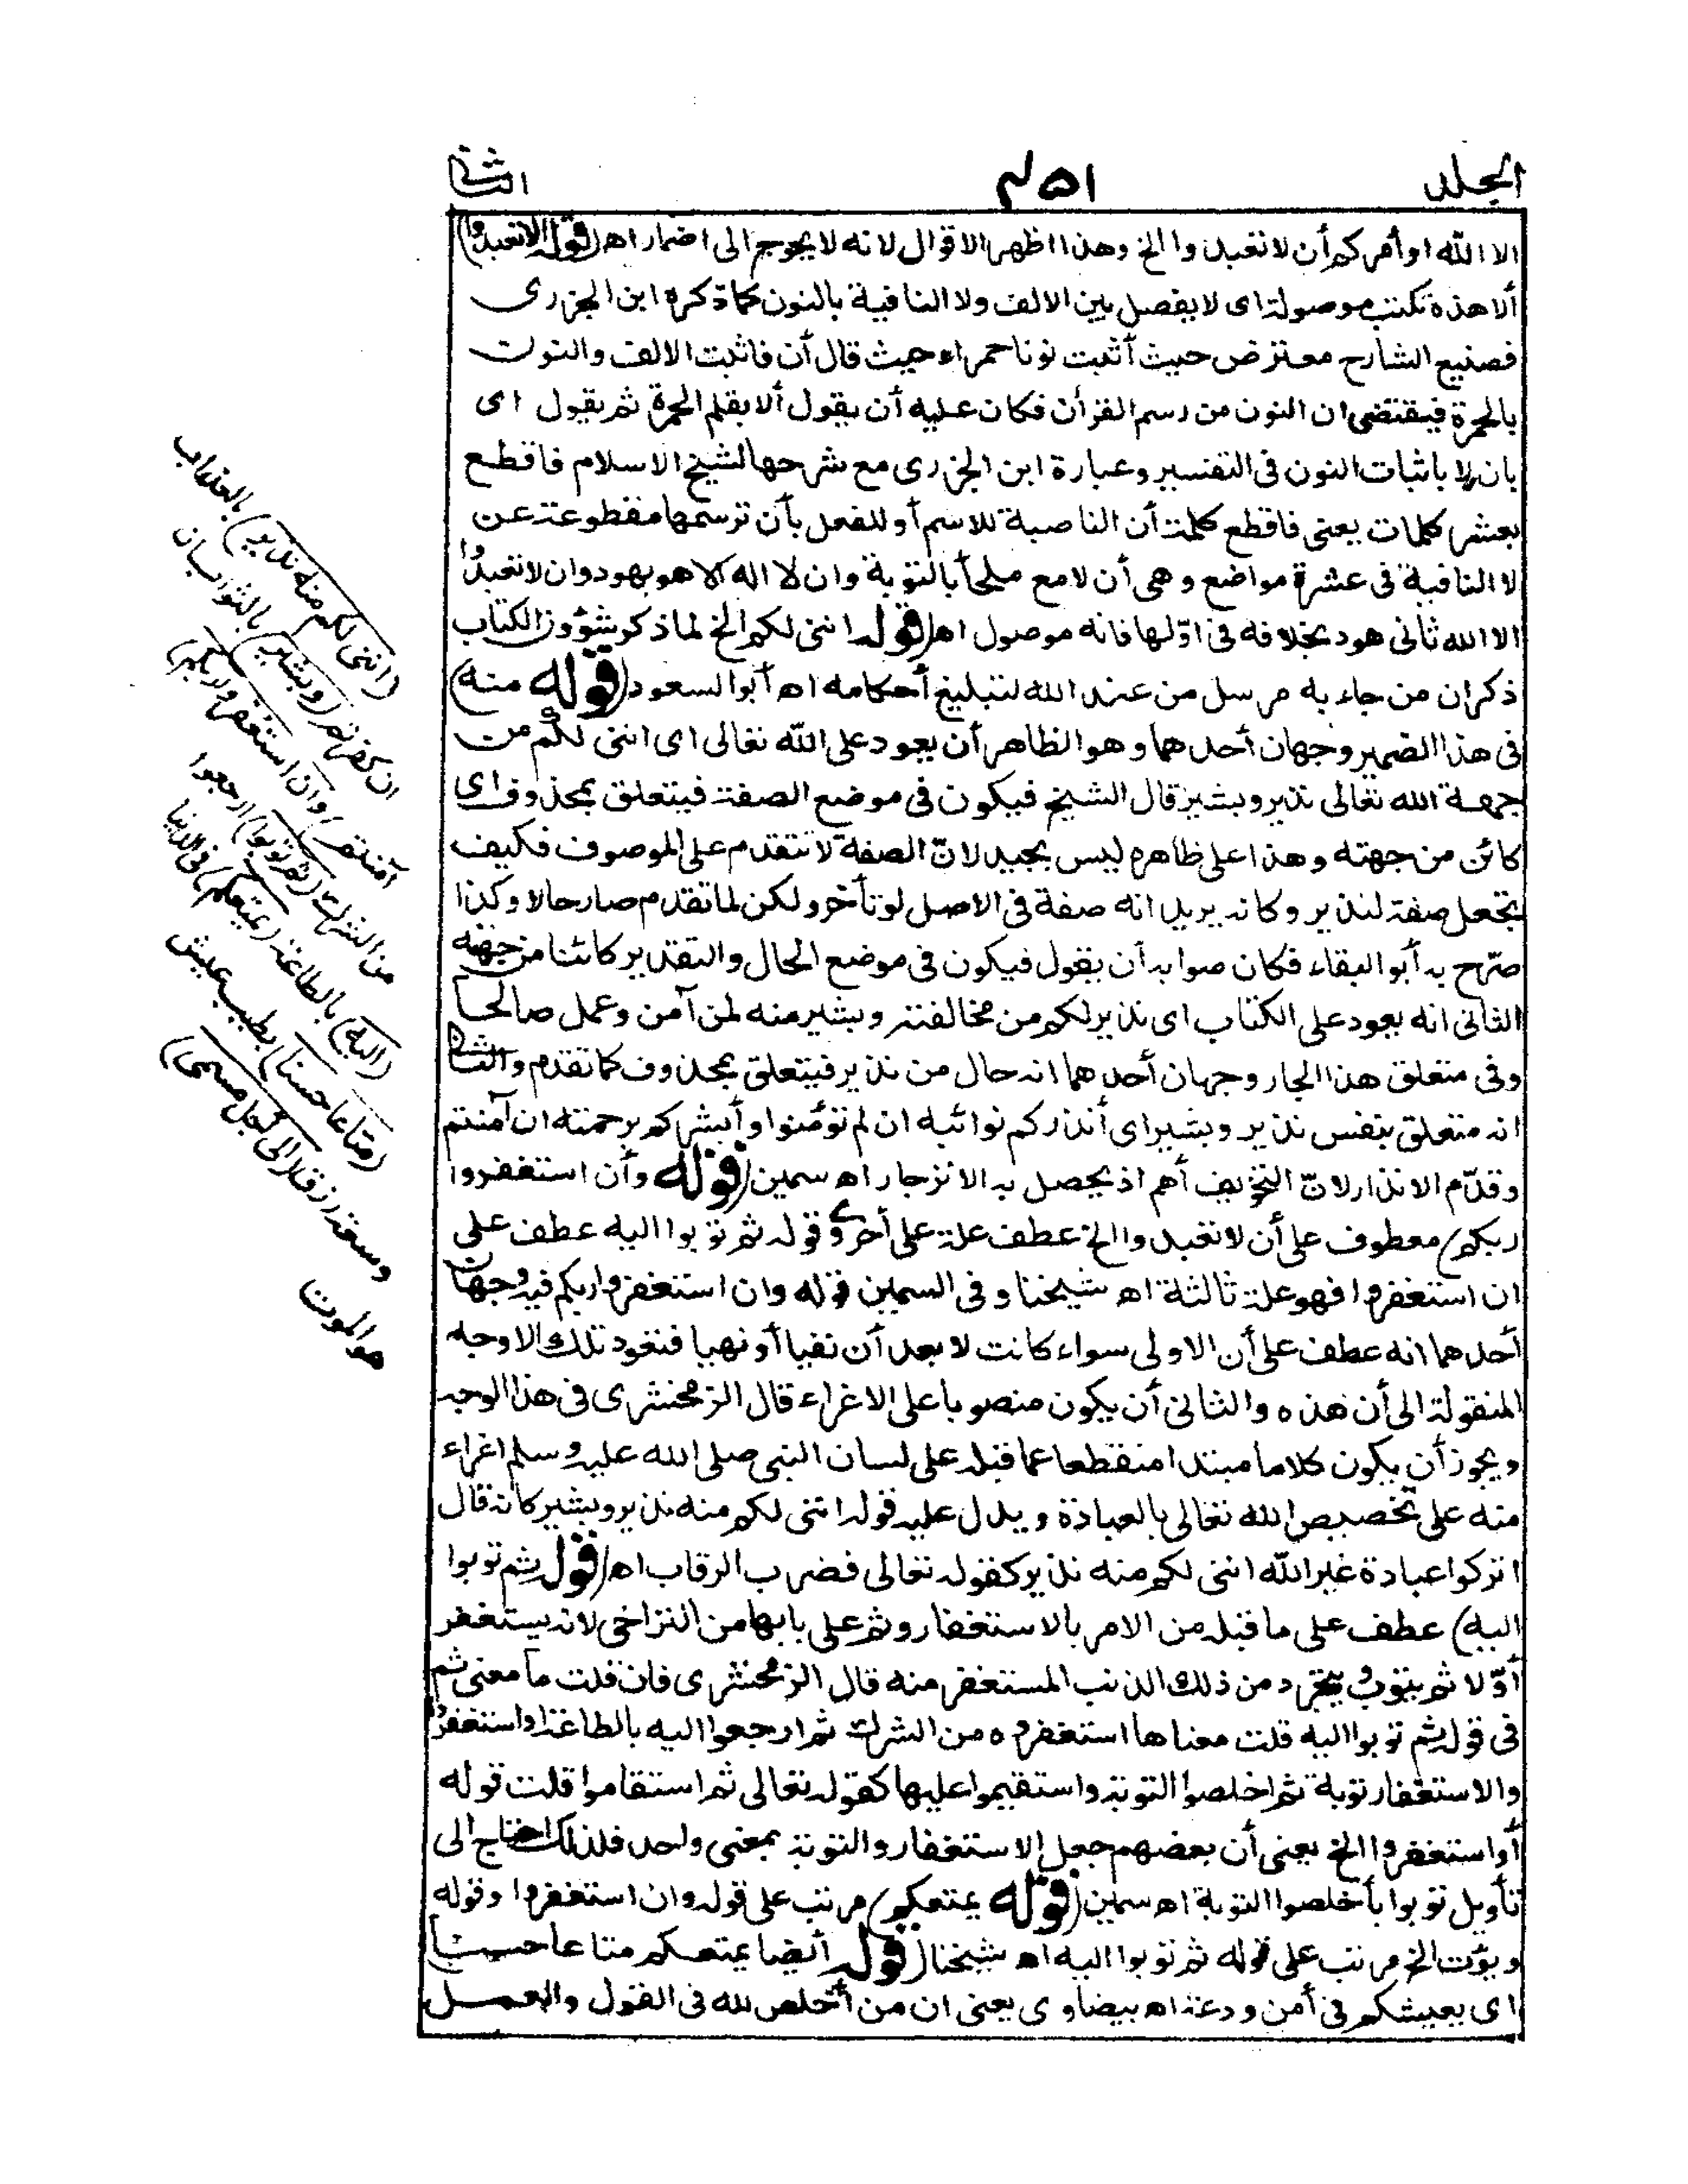 الجلد
٤٥١
الثاني
الا الله او أمركم أن لا تعبدوا الخ وهذا اظهر الاقوال لانه لا يحوج الى اضمار اه (قوله الا تعبدوا)
ألا هذه تكتب موصولة اى لا يفصل بين الالف ولا النافية بالنون كما ذكره ابن الجزرى
فصنيع الشارح معترض حيث أثبت نونا حمراء حيث قال أن فاثبت الالف والنون
بالحمرة فيقتضى ان النون من رسم القرأن فكان عليه أن يقول ألا بقلم الحمرة ثم يقول اى
بان لا باثبات النون فى التفسير وعبارة ابن الجزرى مع شرحها لشيخ الاسلام فاقطع
بعشر كلمات يعنى فاقطع كلمة أن الناصبة للاسم أو للفعل بأن ترسمها مقطوعة عن
لا النافية فى عشرة مواضع وهى أن لا مع ملجأ بالتوبة وان لا اله الا هو بهود وان لا تعبدوا
الا الله ثانى هود بخلافه فى اوّلها فانه موصول اه (قوله اننى لكم الخ لما ذكر شؤون الكتاب
ذكر ان من جاء به مرسل من عند الله لتبليغ أحكامه اه أبو السعود (قوله منه)
فى هذا الضمير وجهان أحدهما وهو الظاهر أن يعود على الله تعالى اى اننى لكم من
جهة الله تعالى نذير وبشير قال الشيخ فيكون فى موضع الصفة فيتعلق بمحذوف اى
كائن من جهته وهذا على ظاهره ليس بجيد لانّ الصفة لا تتقدم على الموصوف فكيف
تجعل صفة لنذير وكانه يريد انه صفة فى الاصل لو تأخر ولكن لما تقدم صار حالا وكذا
صرّح به أبو البقاء فكان صوابه أن يقول فيكون فى موضع الحال والتقدير كائنا من جهته
الثانى انه يعود على الكتاب اى نذير لكم من مخالفته وبشير منه لمن آمن وعمل صالحا
وفى متعلق هذا الجار وجهان أحدهما انه حال من نذير فيتعلق بمحذوف كما تقدم والثانى
انه متعلق بنفس نذير وبشير اى أنذركم نوائبه ان لم تؤمنوا وأبشركم برحمته ان آمنتم
وقدّم الانذار لانّ التخويف أهم اذ يحصل به الانزجار اه سمين (قوله وأن استغفروا
ربكم) معطوف على أن لا تعبدوا الخ عطف علة على أخرى وقوله ثم توبوا اليه عطف على
ان استغفروا فهو علة ثالثة اه شيخنا وفى السمين قوله وان استغفروا ربكم فيه وجهان
أحدهما انه عطف على أن الاولى سواء كانت لا بعد أن نفيا أو نهيا فتعود تلك الاوجه
المنقولة الى أن هذه والثانى أن يكون منصوبا على الاغراء قال الزمخشرى فى هذا الوجه
ويجوز أن يكون كلاما مبتدا منقطعا عما قبله على لسان النبى صلى الله عليه وسلم اغراء
منه على تخصيص الله تعالى بالعبادة ويدل عليه قوله اننى لكم منه نذير وبشير كانه قال
اتركوا عبادة غير الله اننى لكم منه نذير كقوله تعالى فضرب الرقاب اه (قوله ثم توبوا
اليه) عطف على ما قبله من الامر بالاستغفار وثم على بابها من التراخى لانه يستغفر
أوّلا ثم يتوب ويتجرد من ذلك الذنب المستغفر منه قال الزمخشرى فان قلت ما معنى ثم
فى قوله ثم توبوا اليه قلت معناها استغفروه من الشرك ثم ارجعوا اليه بالطاعة او استغفروا
والاستغفار توبة ثم اخلصوا التوبة واستقيموا عليها كقوله تعالى ثم استقاموا قلت قوله
أو استغفروا الخ يعنى أن بعضهم جعل الاستغفار والتوبة بمعنى واحد فلذلك احتاج الى
تأويل توبوا بأخلصوا التوبة اه سمين (قوله يمتعكم) مرتب على قوله وان استغفروا وقوله
ويؤت الخ مرتب على قوله ثم توبوا اليه اه شيخنا (قوله أيضا يمتعكم متاعا حسنا)
اى يعيشكم فى أمن ودعة اه بيضاوى يعنى ان من أخلص لله فى القول والعمل
(اننى لكم منه نذير) بالعذاب
ان كفرتم (وبشير) بالثواب ان
آمنتم (وان استغفروا ربكم)
من الشرك (ثم توبوا) ارجعوا
(اليه) بالطاعة (يمتعكم) فى الدنيا
(متاعا حسنا) بطيب عيش
وسعة رزق (الى أجل مسمى)
هو الموت